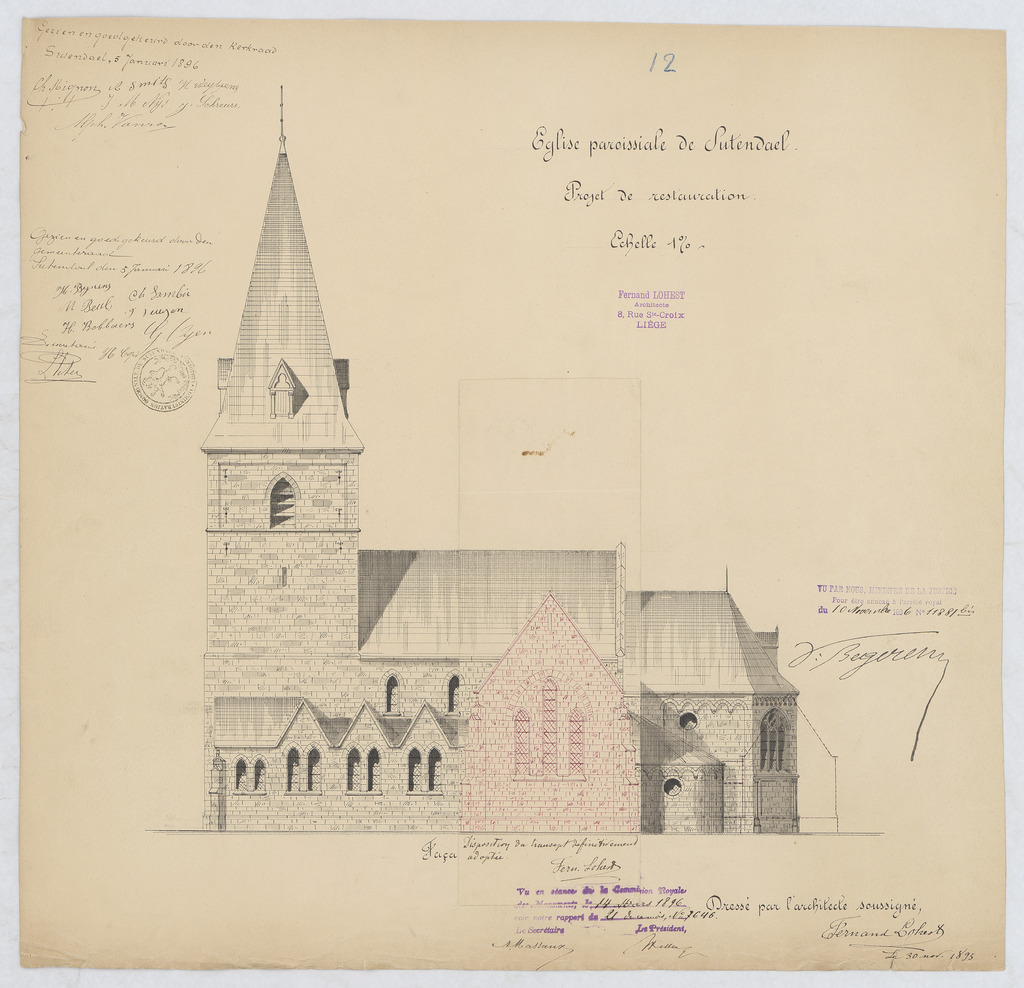 Gezien en goedgekeurd door den Kerkraad
Sutendael, 5 Januari 1896
Ch Mignon A Smits
J M Nijs J. Schreurs
Alph. Vanroy
12
Eglise paroissiale de Sutendael.
Projet de restauration.
Echelle 1%
Fernand LOHEST
Architecte
8, Rue Ste-Croix
LIÈGE
Gezien en goedgekeurd door den
Gemeenteraad
Sutendael den 5 Januari 1896
VU PAR NOUS, MINISTRE DE LA JUSTICE
Pour être annexé à l'arrêté royal
du 10 Novembre 1896 No 11881 bis
V. Begerem
Faça
Disposition du transept définitivement
adoptée.
Fern. Lohest
Vu en séance de la Commission Royale
des Monuments, le 14 Mars 1896
voir notre rapport du 21 No 7646.
Le Secrétaire Le Président,
A Massaux
Dressé par l'architecte soussigné,
Fernand Lohest
Le 30 nov. 1895